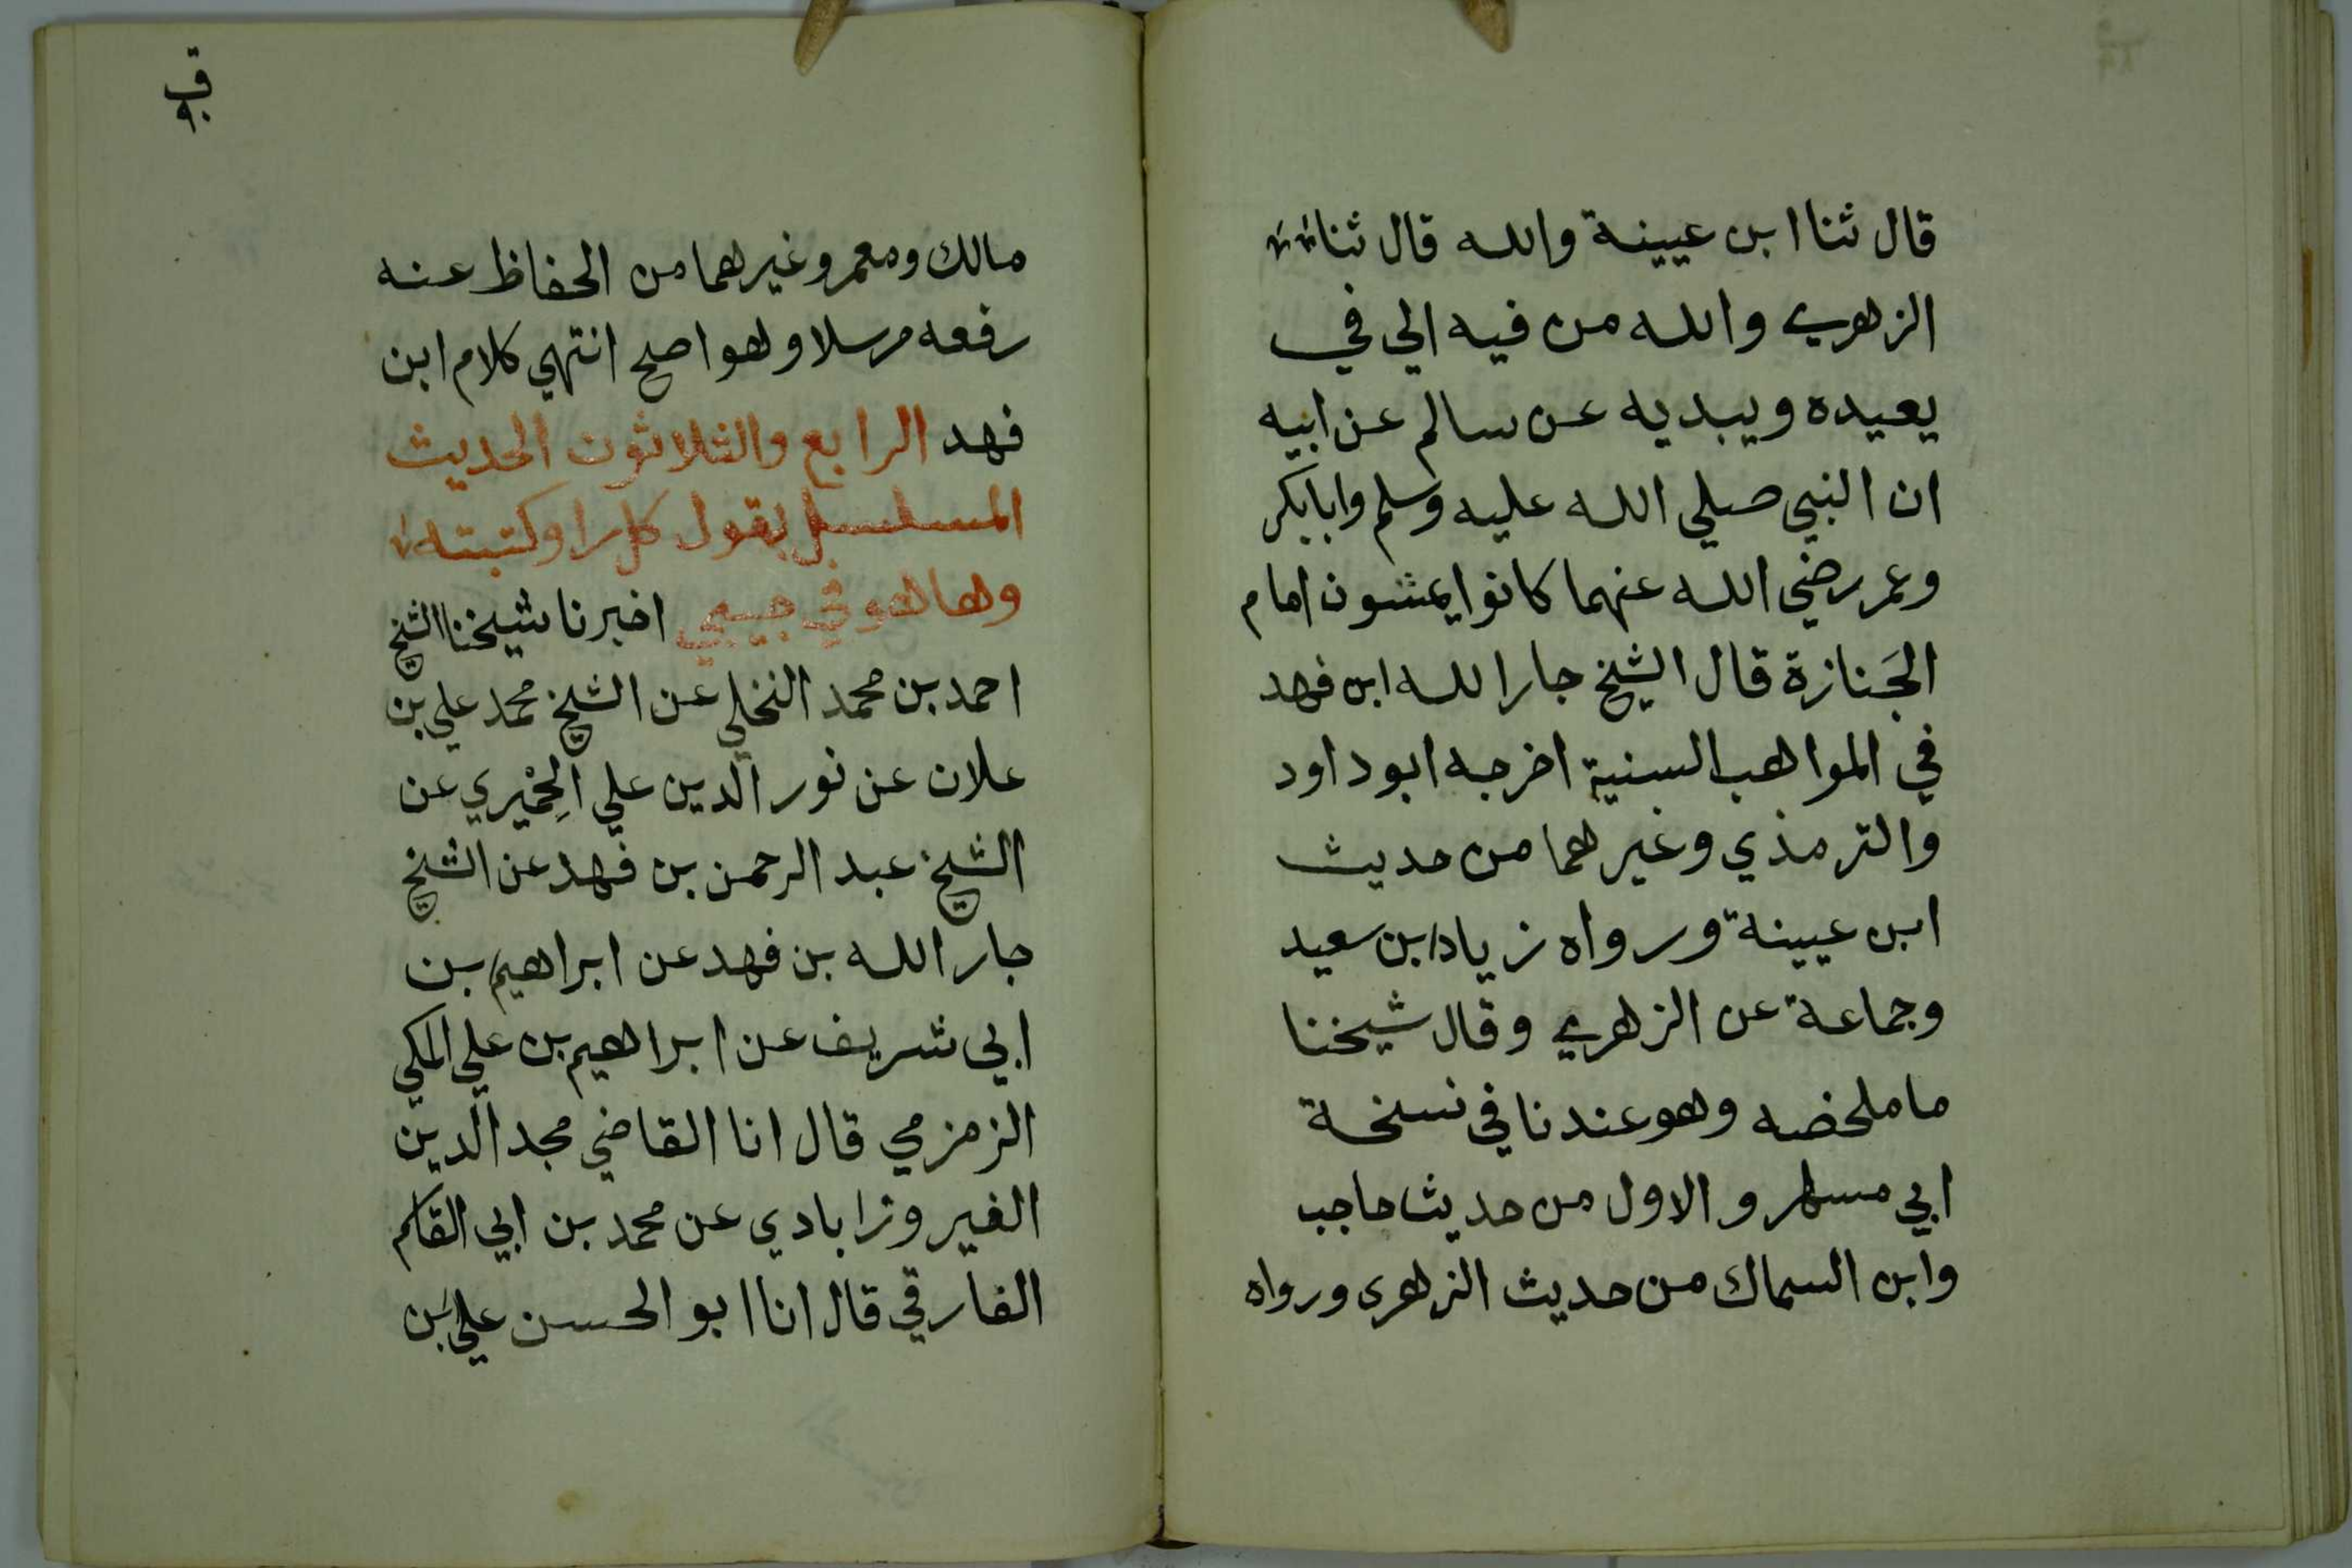 قال ثنا ابن عيينة والله قال ثنا
الزهري والله من فيه الي في
يعيده ويبديه عن سالم عن ابيه
ان النبي صلي الله عليه وسلم وابابكر
وعمر رضي الله عنهما كانوا يمشون امام
الجَنازة قال الشيخ جار الله ابن فهد
في المواهب السنية اخرجه ابوداود
والترمذي وغيرهما من حديث
ابن عيينة ورواه زياد ابن سعيد
وجماعة عن الزهري وقال شيخنا
ما ملخصه وهو عندنا في نسخة
ابي مسهر والاول من حديث حاجب
وابن السماك من حديث الزهري ورواه
مالك ومعمر وغيرهما من الحفاظ عنه
رفعه مرسلا وهو اصح انتهي كلام ابن
فهد الرابع والثلاثون الحديث
المسلسل بقول كل راو كتبته
وها هو في جيبي اخبرنا شيخنا الشيخ
احمد بن محمد النخلي عن الشيخ محمد علي بن
علان عن نور الدين علي الحِمْيري عن
الشيخ عبد الرحمن بن فهد عن الشيخ
جار الله بن فهد عن ابراهيم بن
ابي شريف عن ابراهيم بن علي المكي
الزمزمي قال انا القاضي مجد الدين
الفيروزابادي عن محمد بن ابي القاسم
الفارقي قال انا ابو الحسن علي بن